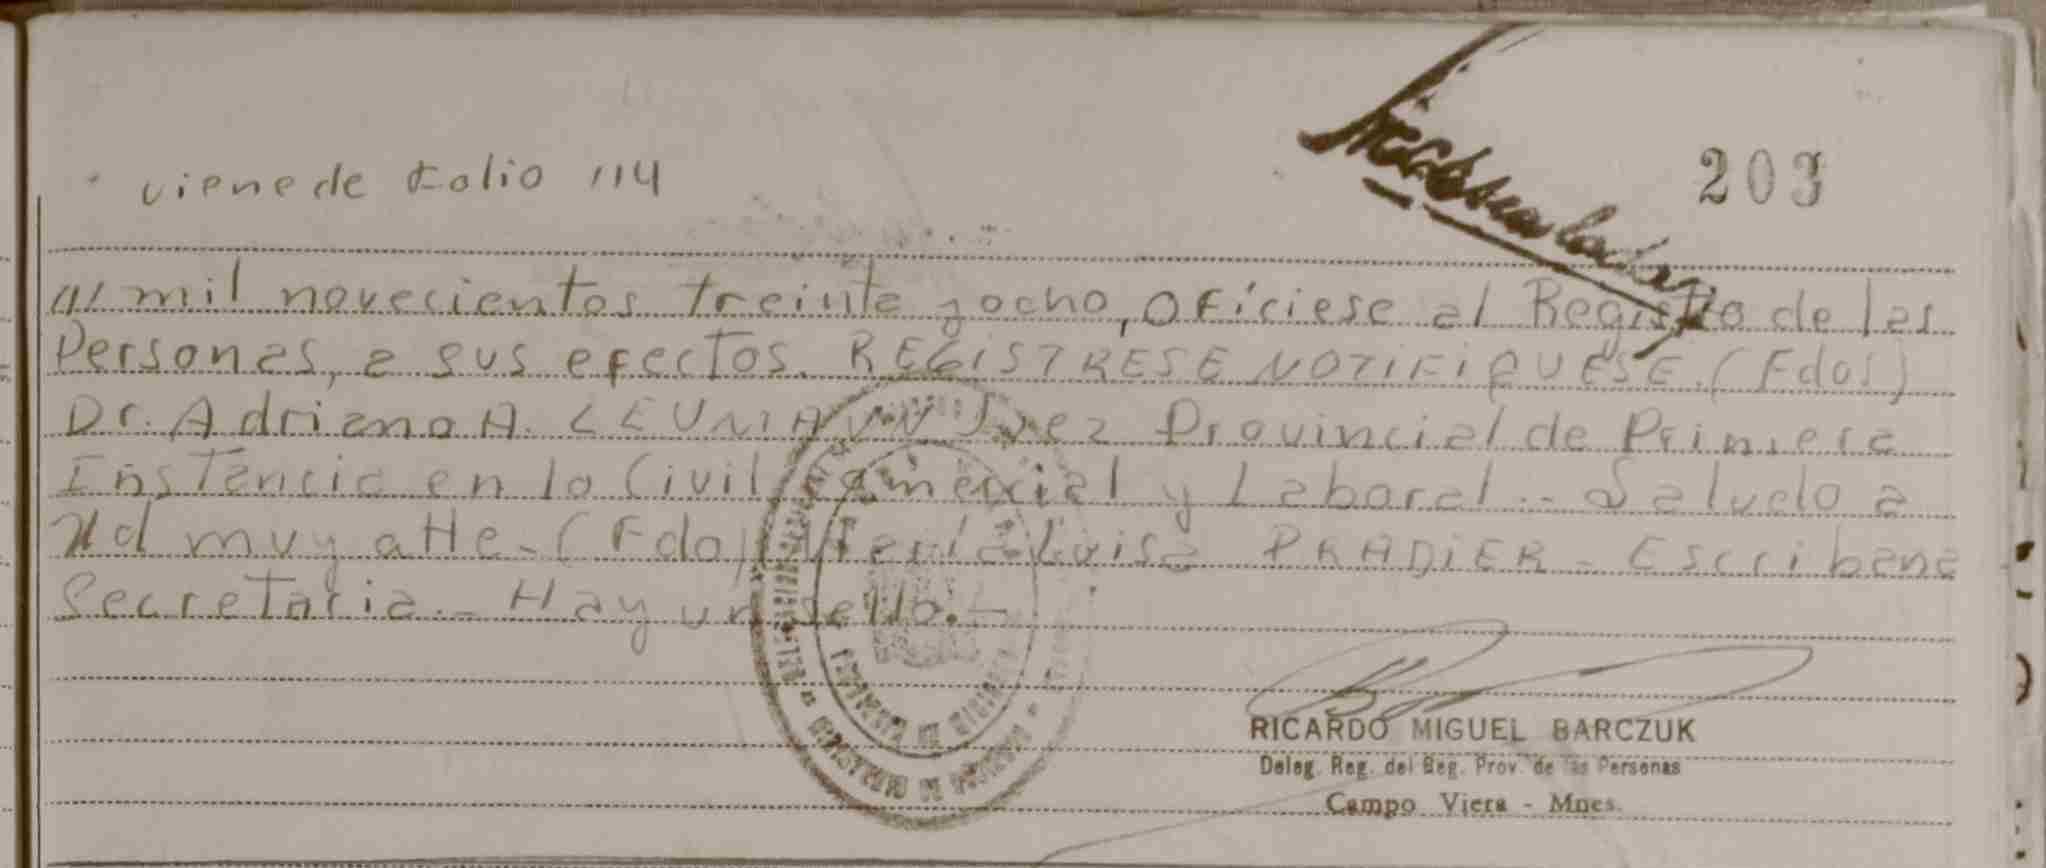 viene de folio 114
203
mil novecientos treinta y ocho, ofíciese al Registro de las
Personas, a sus efectos. REGISTRESE NOTIFIQUESE. (Fdos)
Dr. Adriano A. LEUMANN Juez Provincial de Primera
Instancia en lo Civil, Comercial y Laboral.- Saludo a
Ud muy atte.- (Fdo) María Luisa PRADIER - Escribana
Secretaria.- Hay un sello.-
RICARDO MIGUEL BARCZUK
Deleg. Reg. del Reg. Prov. de las Personas
Campo Viera - Mnes.